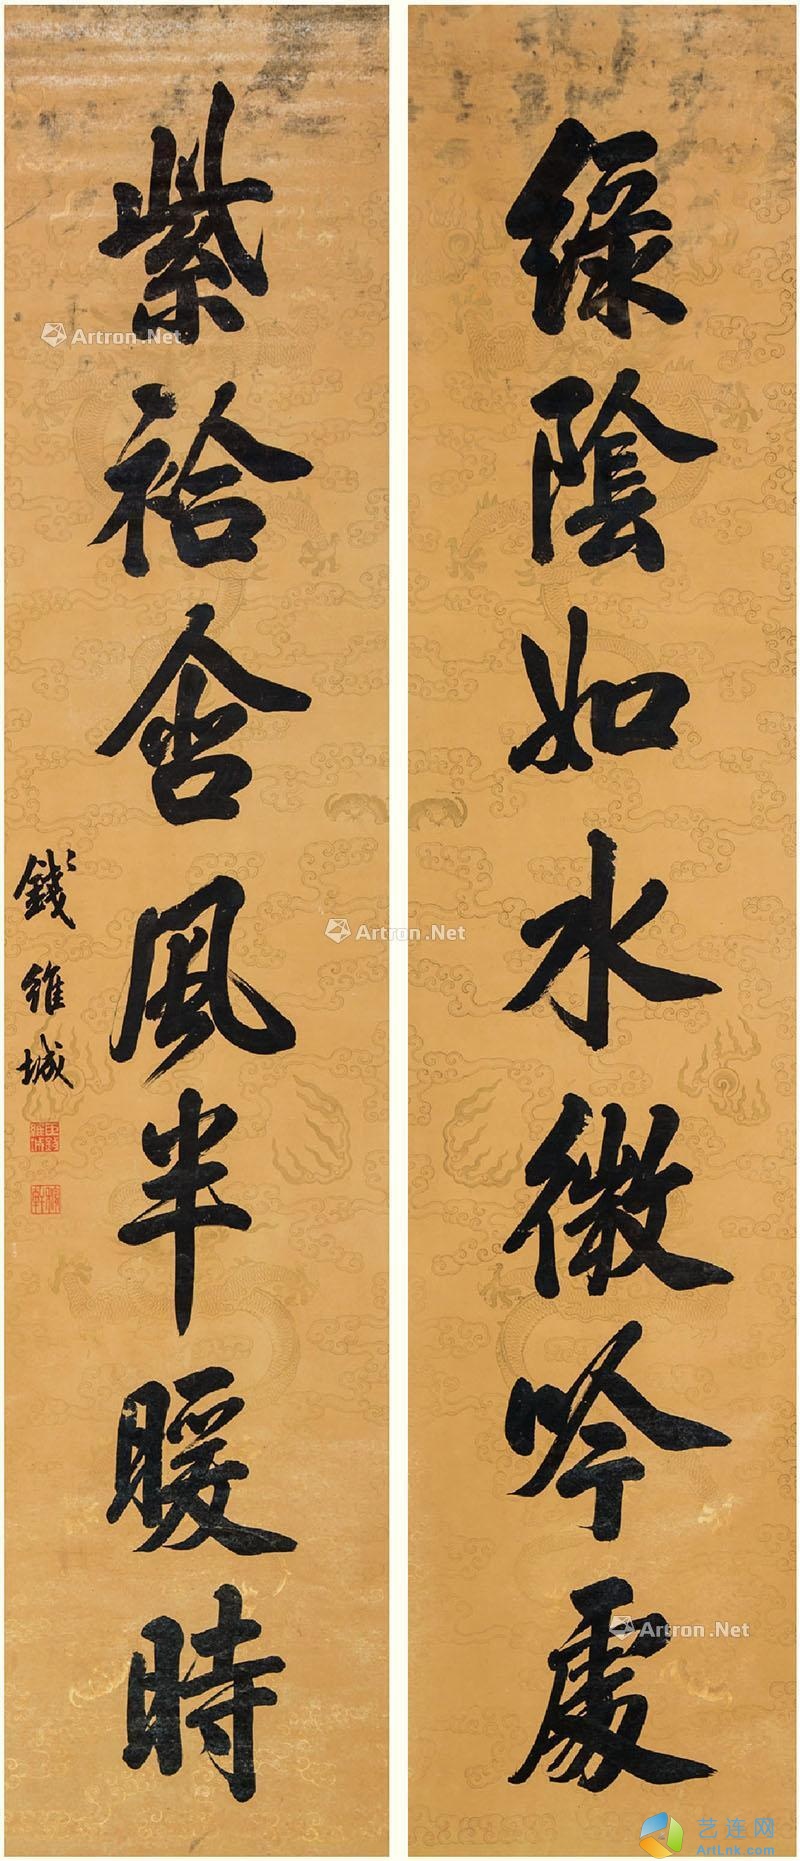 綠陰如水微吟處
紫袷含風半暖時
錢維城
臣錢維城
稼軒
Artron.Net
Artron.Net
Artron.Net
艺连网
ArtLnk.com